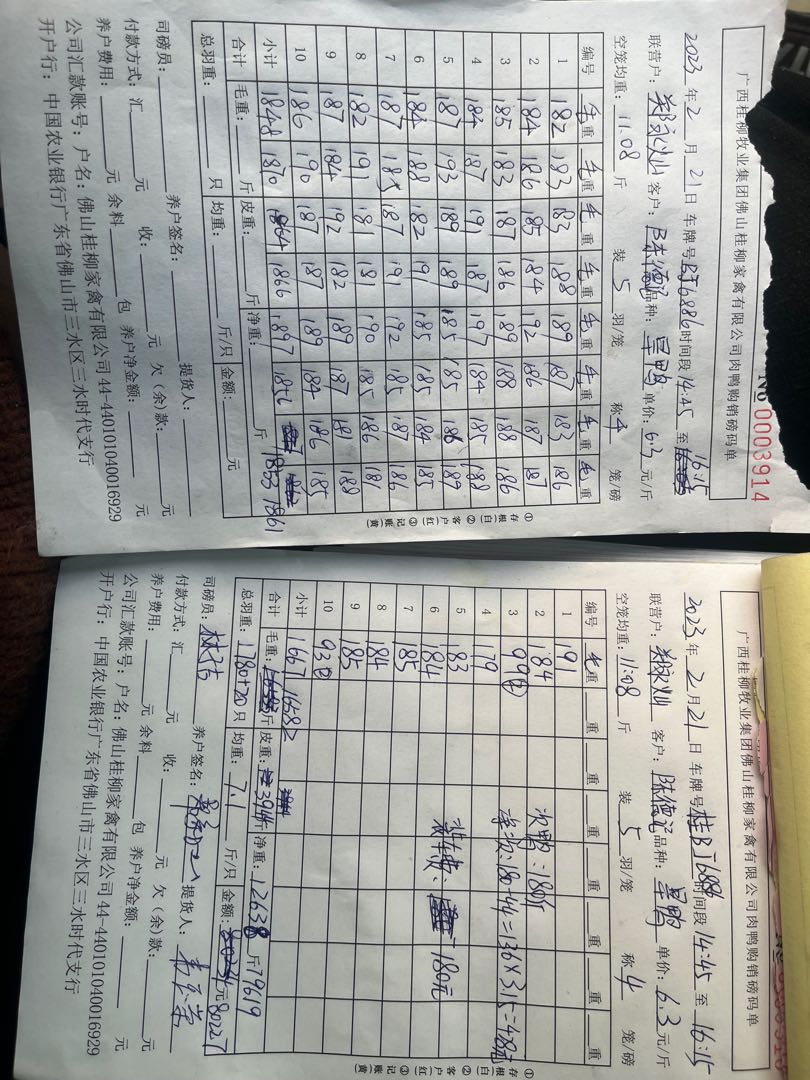 广西桂柳牧业集团佛山桂柳家禽有限公司肉鸭购销磅码单
No 00003914
2023 年 2 月 21 日 车牌号 时间段 14:45 至 16:15
联营户: 客户: 品种: 单价: 6.3 元/斤
空笼均重: 11.08 斤 装 5 羽/笼 称 4 笼/磅
编号 毛重 毛重 毛重 毛重 毛重 毛重 毛重 毛重
1 182 183 183 188 189 187 183 186
2 184 186 185 184 192 186 187 187
3 185 183 187 186 189 188 188 186
4 184 187 191 187 197 184 185 188
5 187 193 189 189 185 185 186 189
6 184 188 182 191 185 185 184 185
7 187 185 187 191 192 185 187 186
8 182 191 181 181 190 185 186 181
9 187 184 192 182 189 187 181 188
10 186 190 187 187 189 184 186 185
小计 1848 1870 1864 1866 1897 1856 1853 1861
合计 毛重: 斤 皮重: 斤 净重: 斤
总羽重: 只 均重: 斤/只 金额: 元
司磅员: 养户签名: 提货人:
付款方式: 汇 元 收: 元 欠(余)款: 元
养户费用: 元 余料 包 养户净金额: 元
公司汇款账号: 户名: 佛山桂柳家禽有限公司 44-440101040016929
开户行: 中国农业银行广东省佛山市三水区三水时代支行
①存根(白) ②客户(红) ③记账(黄)
广西桂柳牧业集团佛山桂柳家禽有限公司肉鸭购销磅码单
2023 年 2 月 21 日 车牌号 桂BJ6886 时间段 14:45 至 16:15
联营户: 客户: 陈德记 品种: 单价: 6.3 元/斤
空笼均重: 11.08 斤 装 5 羽/笼 称 4 笼/磅
编号 毛重 重 重 重 重 重 重 重
1 191
2 184 次鸭: 180斤
3 99② 
4 179
5 183
6 184 180元
7 185
8 184
9 185
10 93②
小计 1667 16582
合计 毛重: 斤 皮重: 3944 斤 净重: 12638 斤 79619
总羽重: 1780+20 只 均重: 7.1 斤/只 金额: 元 80227
司磅员: 养户签名: 提货人:
付款方式: 汇 元 收: 元 欠(余)款: 元
养户费用: 元 余料 包 养户净金额: 元
公司汇款账号: 户名: 佛山桂柳家禽有限公司 44-440101040016929
开户行: 中国农业银行广东省佛山市三水区三水时代支行
①存根(白) ②客户(红) ③记账(黄)